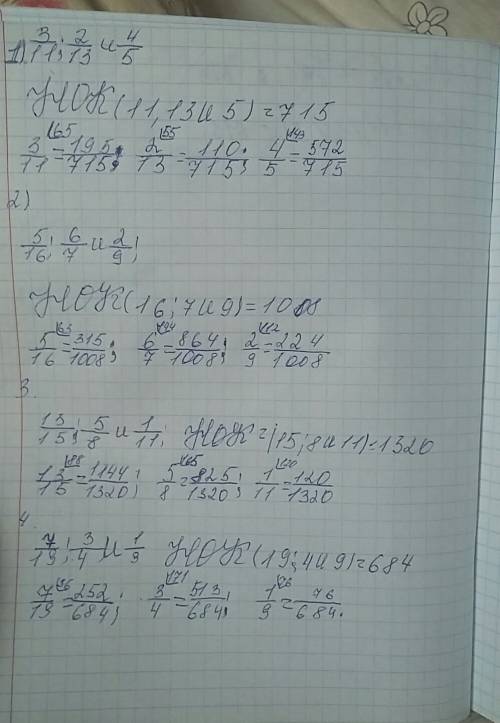 1) 3/11; 2/13 и 4/5
НОК(11,13и5)=715
3/11^65=195/715; 2/13^55=110/715; 4/5^143=572/715
2)
5/16; 6/7 и 2/9;
НОК(16;7и9)=1008
5/16^63=315/1008; 6/7^144=864/1008; 2/9^112=224/1008
3.
13/15; 5/8 и 1/11; НОК=(15;8и11)=1320
13/15^88=1144/1320; 5/8^165=825/1320; 1/11^120=120/1320
4.
7/19; 3/4 и 1/9 НОК(19;4и9)=684
7/19^36=252/684; 3/4^171=513/684; 1/9^76=76/684.